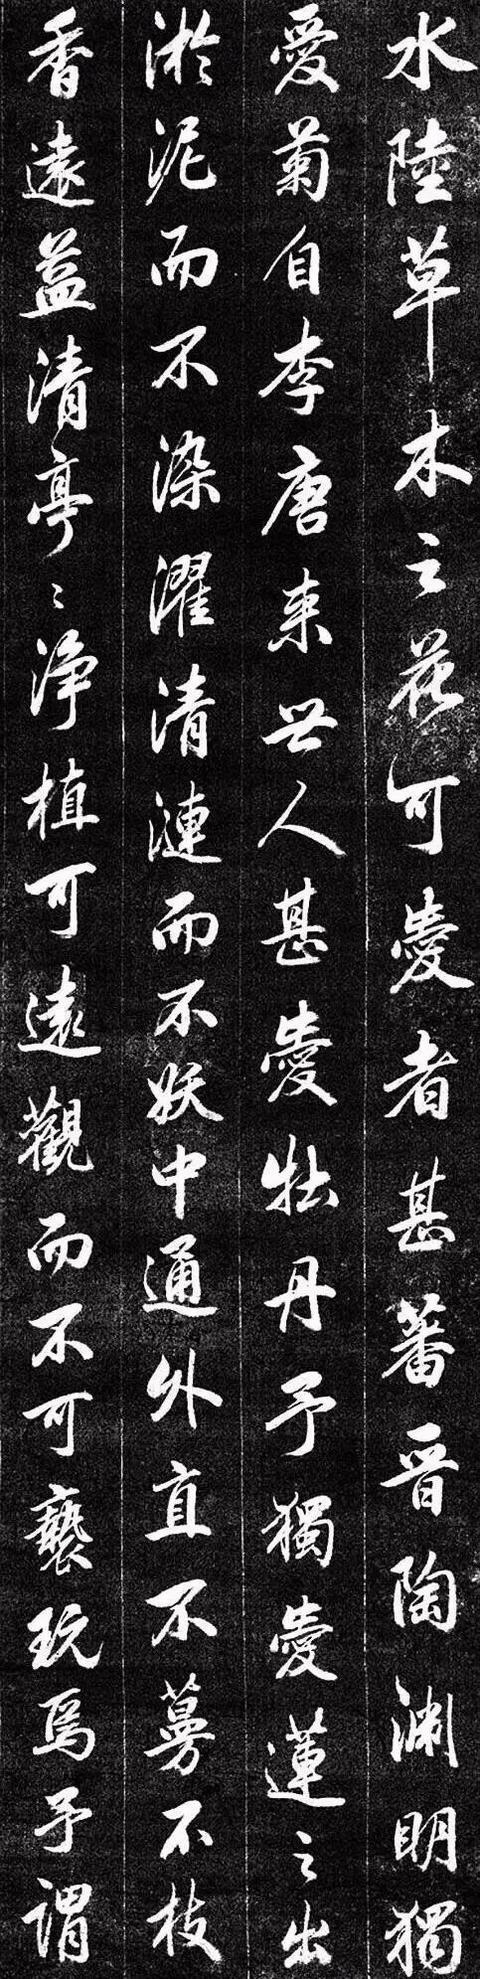 水陸草木之花可愛者甚蕃晋陶渊明獨
愛菊自李唐来世人甚愛牡丹予獨愛蓮之出
淤泥而不染濯清漣而不妖中通外直不蔓不枝
香遠益清亭〻浄植可遠觀而不可褻玩焉予謂